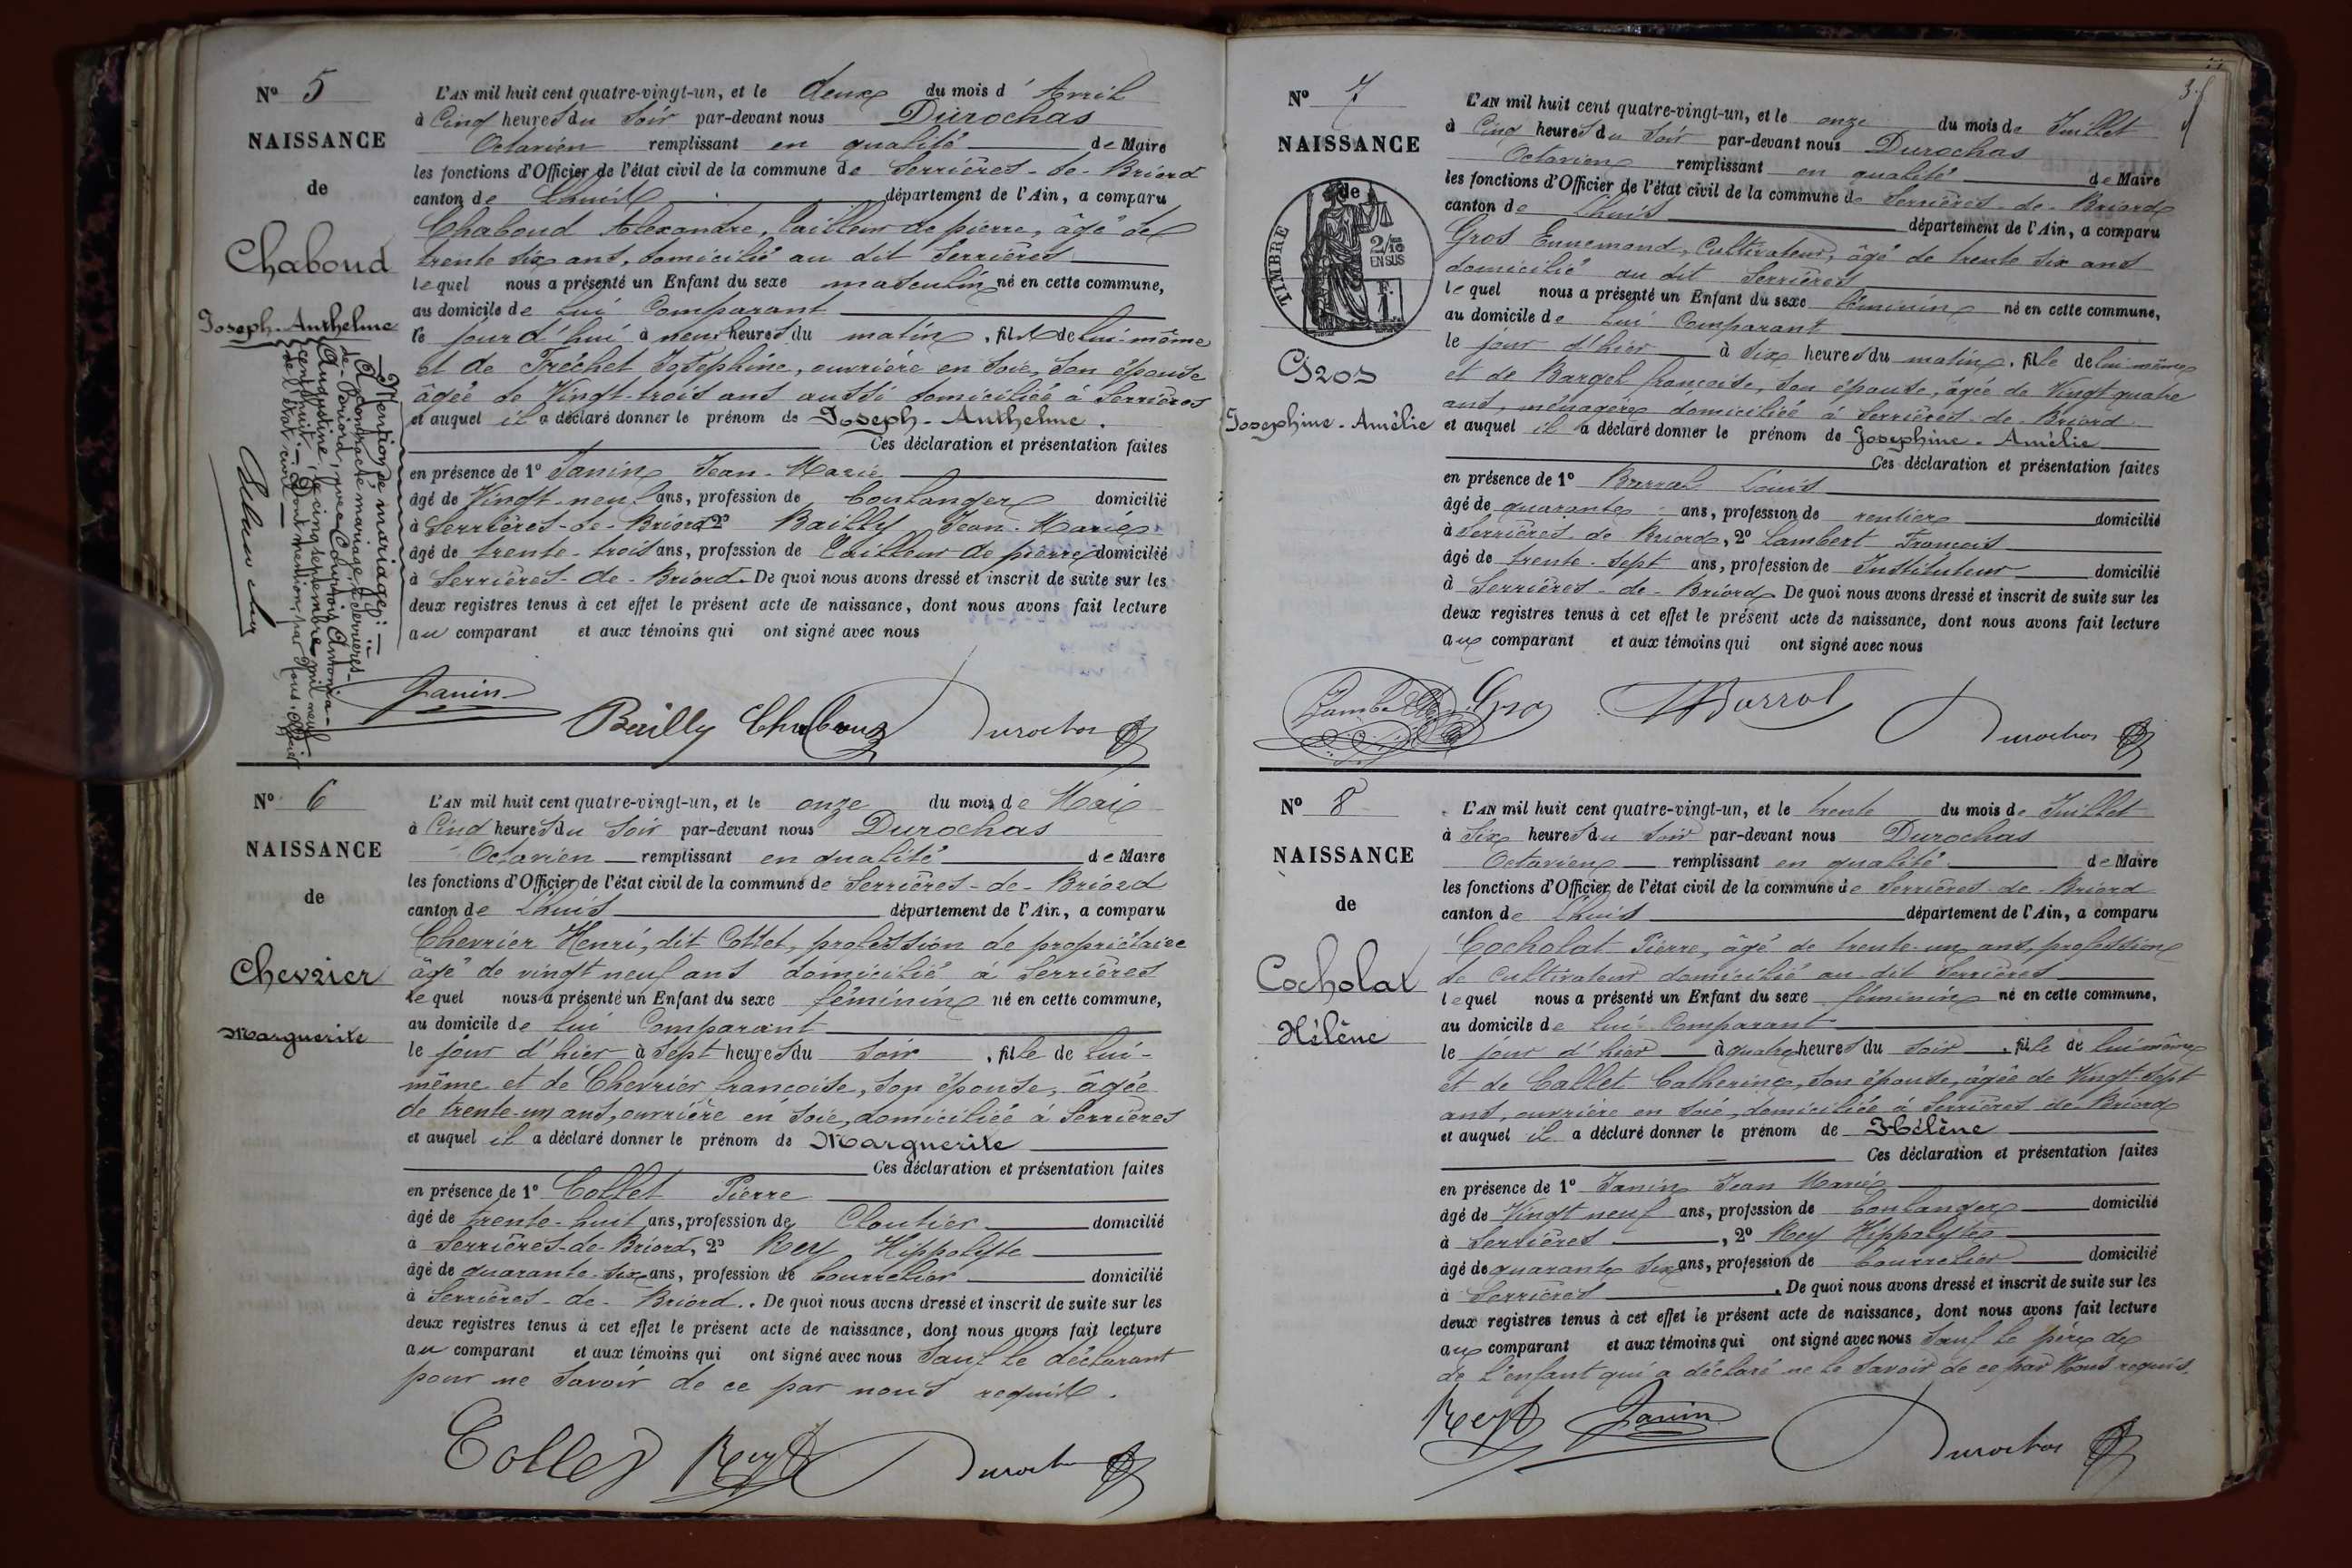 N° 5
NAISSANCE
de
Chaboud
Joseph-Anthelme
Mention de mariage:
A contracté mariage à Serrières-
de-Briord, avec Courtois Antonia-
Augustine, le cinq septembre mil neuf
cent huit. Dont mention, par Nous, Officier
de l'état-civil.
L'AN mil huit cent quatre-vingt-un, et le deux du mois d'Avril
à Cinq heures du Soir par-devant nous Durochas
Octavien remplissant en qualité de Maire
les fonctions d'Officier de l'état civil de la commune de Serrières-de-Briord
canton de Lhuis département de l'Ain, a comparu
Chaboud Alexandre, tailleur de pierre, âgé de
trente six ans, domicilié au dit Serrières
lequel nous a présenté un Enfant du sexe masculin né en cette commune,
au domicile de Lui Comparant
le jour d'hui à neuf heures du matin, fils de lui-même
et de Fréchet Joséphine, ouvrière en soie, son épouse
âgée de Vingt-trois ans aussi domiciliée à Serrières
et auquel il a déclaré donner le prénom de Joseph-Anthelme.
Ces déclaration et présentation faites
en présence de 1° Janin Jean-Marie
âgé de Vingt-neuf ans, profession de boulanger domicilié
à Serrières-de-Briord 2° Bailly Jean-Marie
âgé de trente-trois ans, profession de Tailleur de pierre domicilié
à Serrières-de-Briord. De quoi nous avons dressé et inscrit de suite sur les
deux registres tenus à cet effet le présent acte de naissance, dont nous avons fait lecture
au comparant et aux témoins qui ont signé avec nous
Janin Bailly Chaboud Durochas
N° 6
NAISSANCE
de
Chevrier
Marguerite
L'AN mil huit cent quatre-vingt-un, et le onze du mois de Mai
à Cinq heures du Soir par-devant nous Durochas
Octavien remplissant en qualité de Maire
les fonctions d'Officier de l'état civil de la commune de Serrières-de-Briord
canton de Lhuis département de l'Ain, a comparu
Chevrier Henri, dit Cottet, profession de propriétaire
âgé de vingt neuf ans domicilié à Serrières
lequel nous a présenté un Enfant du sexe féminin né en cette commune,
au domicile de Lui Comparant
le jour d'hier à Sept heures du Soir, fille de Lui-
même et de Chevrier françoise, son épouse, âgée
de trente-un ans, ouvrière en soie, domiciliée à Serrières
et auquel il a déclaré donner le prénom de Marguerite
Ces déclaration et présentation faites
en présence de 1° Collet Pierre
âgé de trente-huit ans, profession de Cloutier domicilié
à Serrières-de-Briord, 2° Rey Hippolyte
âgé de quarante-six ans, profession de bourrelier domicilié
à Serrières-de-Briord. De quoi nous avons dressé et inscrit de suite sur les
deux registres tenus à cet effet le présent acte de naissance, dont nous avons fait lecture
au comparant et aux témoins qui ont signé avec nous Sauf le déclarant
pour ne savoir de ce par nous requis.
Collet Rey Durochas
N° 7
NAISSANCE
de
TIMBRE
2/10 EN SUS
Gros
Josephine-Amélie
L'AN mil huit cent quatre-vingt-un, et le onze du mois de Juillet
à Cinq heures du Soir par-devant nous Durochas
Octavien remplissant en qualité de Maire
les fonctions d'Officier de l'état civil de la commune de Serrières-de-Briord
canton de Lhuis département de l'Ain, a comparu
Gros Ennemond, Cultivateur, âgé de trente six ans
domicilié au dit Serrières
lequel nous a présenté un Enfant du sexe féminin né en cette commune,
au domicile de Lui Comparant
le jour d'hier à six heures du matin, fille de lui même
et de Bargel françoise, son épouse, âgée de Vingt quatre
ans, ménagère domiciliée à Serrières-de-Briord
et auquel il a déclaré donner le prénom de Josephine-Amélie
Ces déclaration et présentation faites
en présence de 1° Barral Louis
âgé de quarante ans, profession de rentier domicilié
à Serrières de Briord, 2° Lambert François
âgé de trente-sept ans, profession de Instituteur domicilié
à Serrières-de-Briord De quoi nous avons dressé et inscrit de suite sur les
deux registres tenus à cet effet le présent acte de naissance, dont nous avons fait lecture
au comparant et aux témoins qui ont signé avec nous
Lambert Gros Barral Durochas
N° 8
NAISSANCE
de
Cocholat
Hélène
L'AN mil huit cent quatre-vingt-un, et le trente du mois de Juillet
à Six heures du Soir par-devant nous Durochas
Octavien remplissant en qualité de Maire
les fonctions d'Officier de l'état civil de la commune de Serrières-de-Briord
canton de Lhuis département de l'Ain, a comparu
Cocholat Pierre, âgé de trente-un ans, profession
de Cultivateur domicilié au dit Serrières
lequel nous a présenté un Enfant du sexe féminin né en cette commune,
au domicile de Lui Comparant
le jour d'hier à quatre heures du soir, fille de lui même
et de Callet Catherine, son épouse, âgée de Vingt-Sept
ans, ouvrière en soie, domiciliée à Serrières de Briord
et auquel il a déclaré donner le prénom de Hélène
Ces déclaration et présentation faites
en présence de 1° Janin Jean Marie
âgé de Vingt neuf ans, profession de boulanger domicilié
à Serrières, 2° Rey Hippolyte
âgé de quarante six ans, profession de bourrelier domicilié
à Serrières. De quoi nous avons dressé et inscrit de suite sur les
deux registres tenus à cet effet le présent acte de naissance, dont nous avons fait lecture
au comparant et aux témoins qui ont signé avec nous Sauf le père de
de l'enfant qui a déclaré ne le savoir de ce par Nous requis.
Rey Janin Durochas